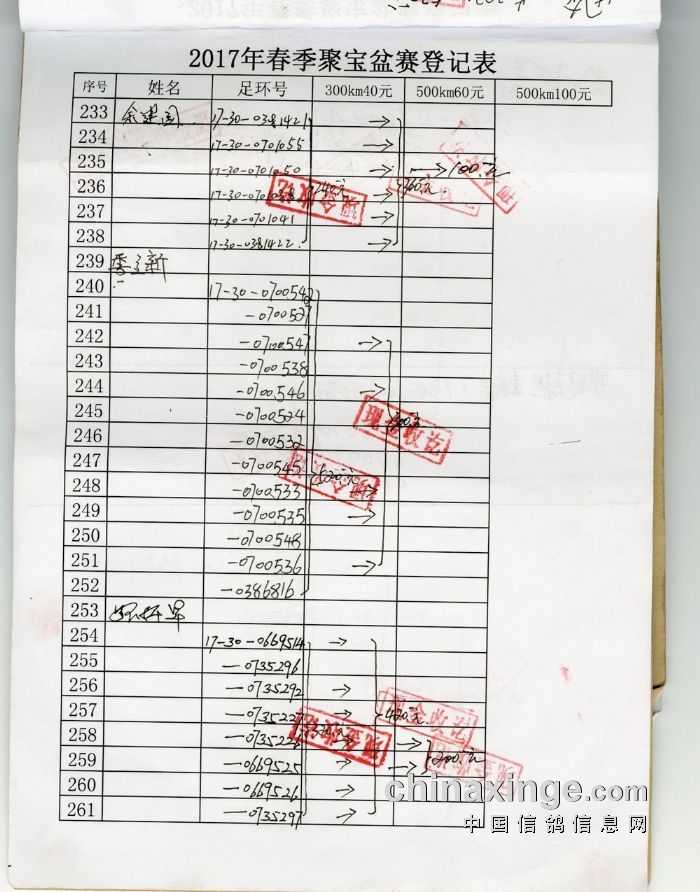 2017年春季聚宝盆赛登记表
序号 姓名 足环号 300km40元 500km60元 500km100元
233 余建国 17-30-0381421 →
234 17-30-0701055 →
235 17-30-0701050 → → 100元
236 17-30-0701038 240元 → 360元
237 17-30-0701041 →
238 17-30-0381422 →
239 季立新
240 17-30-0700542
241 -0700527
242 -0700547 →
243 -0700538
244 -0700546 →
245 -0700524
246 -0700532
247 -0700545
248 -0700533 →
249 -0700535 →
250 -0700548
251 -0700536 →
252 -0386816
253
254 17-30-0669514 →
255 -0735296
256 -0735292 →
257 -0735227 → 420元
258 -0735226 320元 → →
259 -0669525 → → 200元
260 -0669526 →
261 -0735297 →
现金收讫
现金收讫
现金收讫
现金收讫
chinaxinge.com
中国信鸽信息网